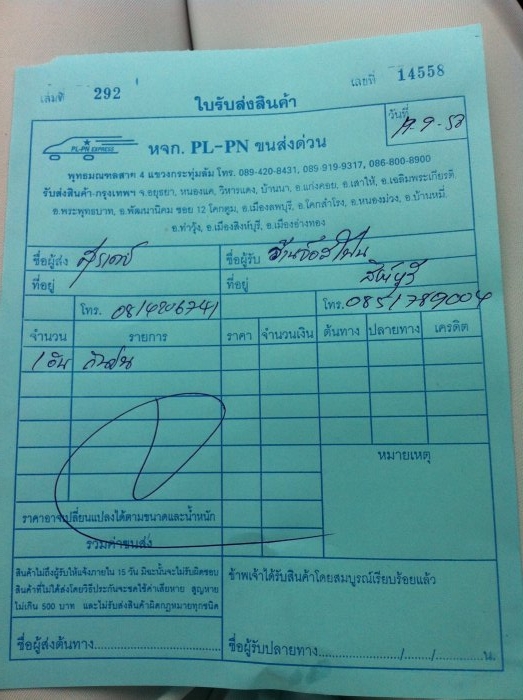 เล่มที่ 292
เลขที่ 14558
ใบรับส่งสินค้า
วันที่
PL-PN EXPRESS
หจก. PL-PN ขนส่งด่วน
พุทธมณฑลสาย 4 แขวงกระทุ่มล้ม โทร. 089-420-8431, 089-919-9317, 086-800-8900
รับส่งสินค้า-กรุงเทพฯ จ.อยุธยา, หนองแค, วิหารแดง, บ้านนา, อ.แก่งคอย, อ.เสาไห้, อ.เฉลิมพระเกียรติ
อ.พระพุทธบาท, อ.พัฒนานิคม ซอย 12 โคกตูม, อ.เมืองลพบุรี, อ.โคกสำโรง, อ.หนองม่วง, อ.บ้านหมี่
อ.ท่าวุ้ง, อ.เมืองสิงห์บุรี, อ.เมืองอ่างทอง
ชื่อผู้ส่ง
ชื่อผู้รับ
ที่อยู่
ที่อยู่
โทร. 0814206741
โทร. 0851789004
จำนวน รายการ ราคา จำนวนเงิน ต้นทาง ปลายทาง เครดิต
1 อัน กันชน
หมายเหตุ
ราคาอาจเปลี่ยนแปลงได้ตามขนาดและน้ำหนัก
รวมค่าขนส่ง
สินค้าไม่ถึงผู้รับให้แจ้งภายใน 15 วัน มิฉะนั้นจะไม่รับผิดชอบ
สินค้าที่ไม่ได้ส่งโดยวิธีประกันจะชดใช้ค่าเสียหาย สูญหาย
ไม่เกิน 500 บาท และไม่รับส่งสินค้าผิดกฎหมายทุกชนิด
ข้าพเจ้าได้รับสินค้าโดยสมบูรณ์เรียบร้อยแล้ว
ชื่อผู้ส่งต้นทาง....................
ชื่อผู้รับปลายทาง..................../........../..........น.